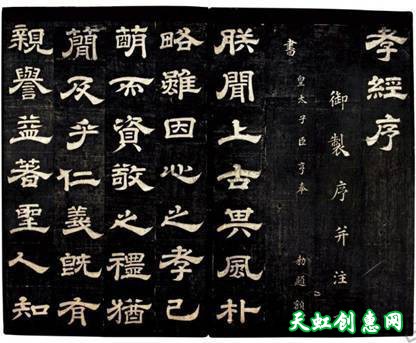 孝經序
御製序并注
皇太子臣亨奉 勑題額
書
朕聞上古其風朴
略雖因心之孝已
萌而資敬之禮猶
簡及乎仁義既有
親譽益著聖人知
天虹创惠网